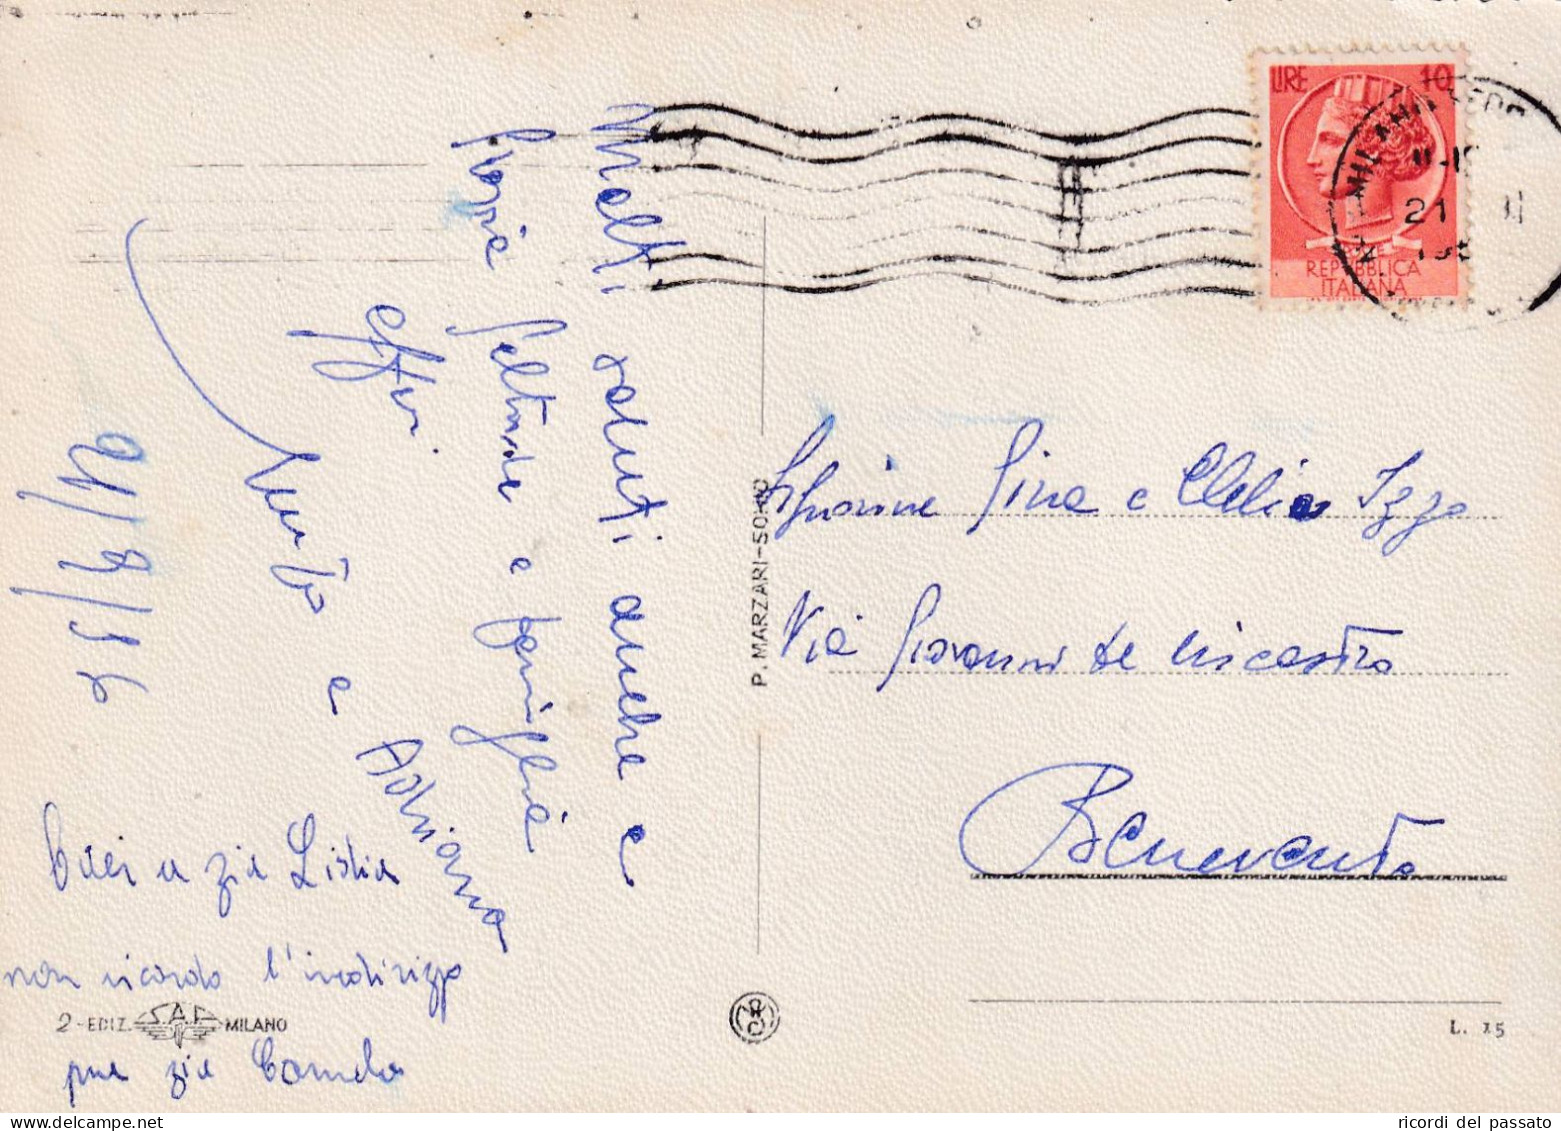 Molti saluti anche a
Peppe Geltrude e famiglia
Adriana
21/8/56
Baci a zia Lidia
non ricordo l'indirizzo
pure zia Carmela
2-EDIZ. S.A.F. MILANO
P. MARZARI-SCHIO
LIRE 10
REPUBBLICA
ITALIANA
MILANO
21
Signorine Gina e Clelia Izzo
Via Giovanni de Nicastro
Benevento
L. 15
ricordi del passato